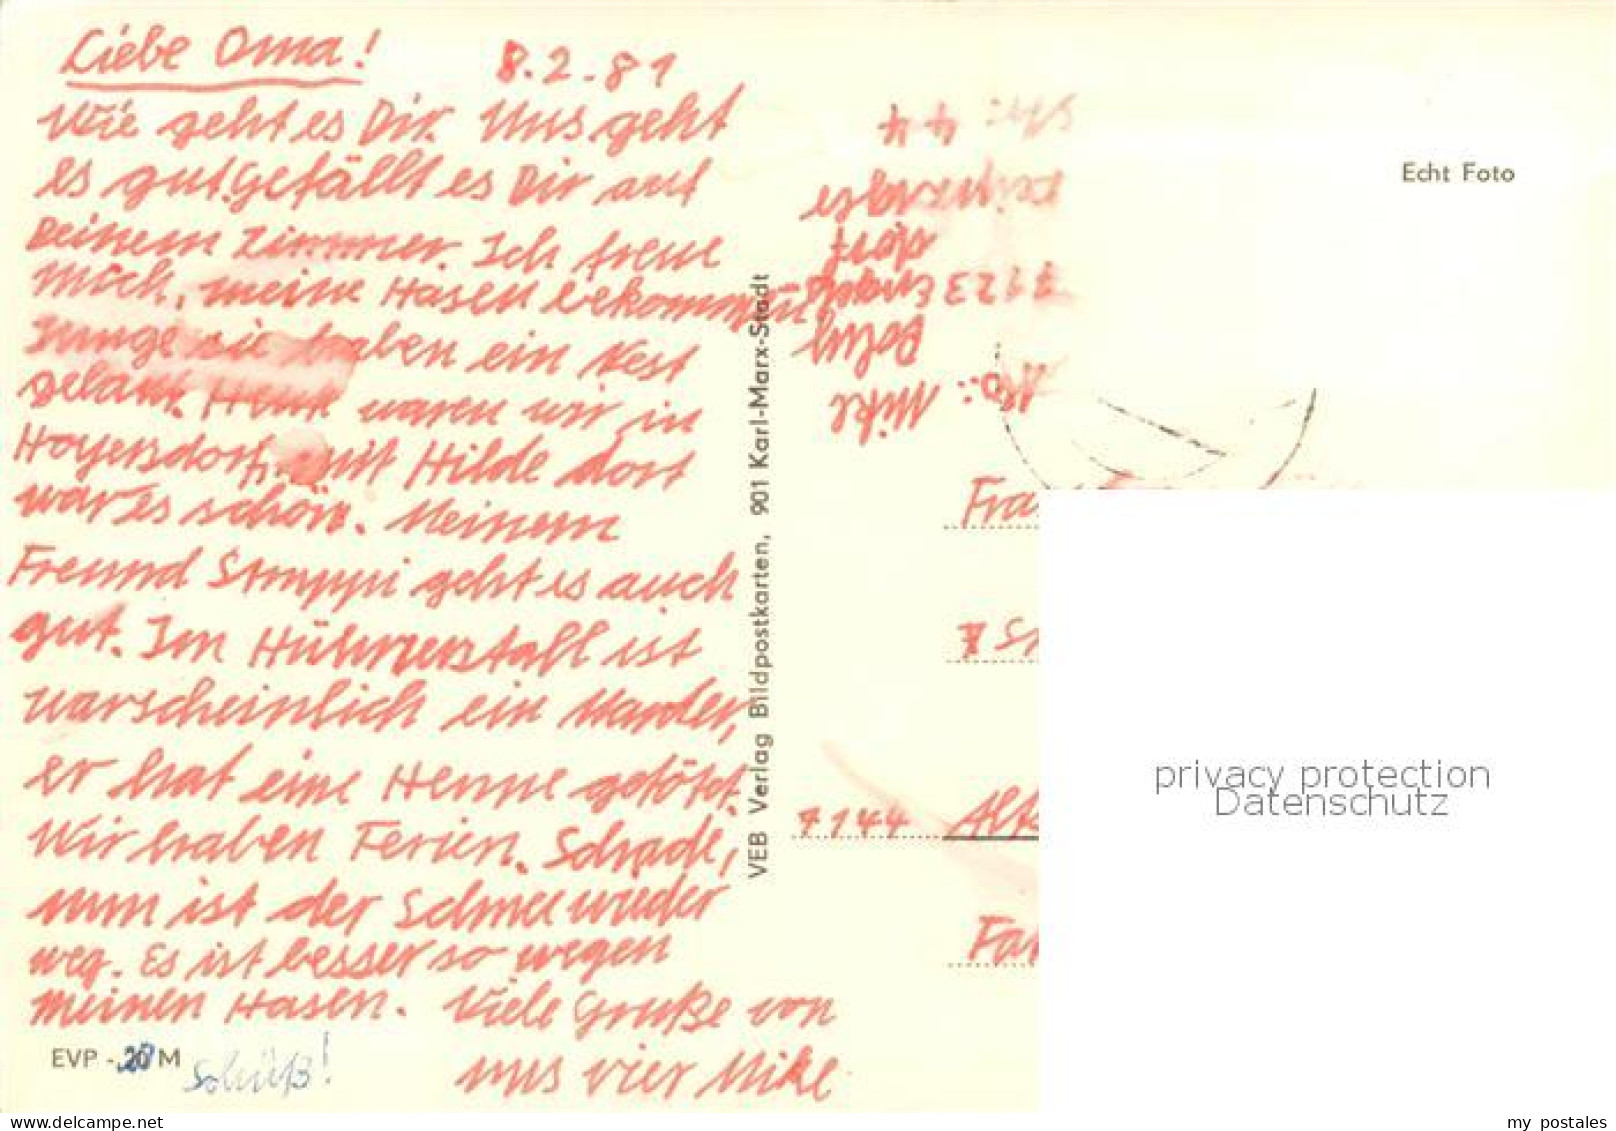 Liebe Oma!
8.2.81
Wie geht es Dir. Uns geht
es gut. Gefällt es Dir auf
Deinem Zimmer. Ich freue
mich, meine Hasen bekommen
Junge sie haben ein Nest
gebaut. Heute waren wir in
Hoyersdorf, mit Hilde dort
war es schön. Meinem
Freund Struppi geht es auch
gut. Im Hühnerstall ist
warscheinlich ein Marder,
er hat eine Henne getötet.
Wir haben Ferien. Schade,
nun ist der Schnee wieder
weg. Es ist besser so wegen
meinen Hasen. Viele Gruße von
uns vier Mike
EVP - 20 M
Schüß!
VEB Verlag Bildpostkarten, 901 Karl-Marx-Stadt
Echt Foto
Str: 44
Leipziger
dorf
7123 Engels
Mike
Fra
7144 Alt
privacy protection
Datenschutz
my postales
delcampe.net